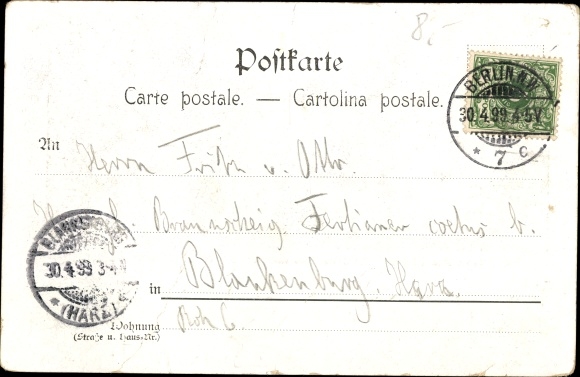 8,-
Postkarte
Carte postale. — Cartolina postale.
BERLIN N.W.
30.4.99 4-5N
* 7 c
An Herrn Fritz v. Otto.
Braunschweig Tertianer coetus b.
BLANKENBURG
30.4.99 3-4N
* (HARZ)
in Blankenburg. Harz.
Wohnung
(Straße u. Haus-Nr.)